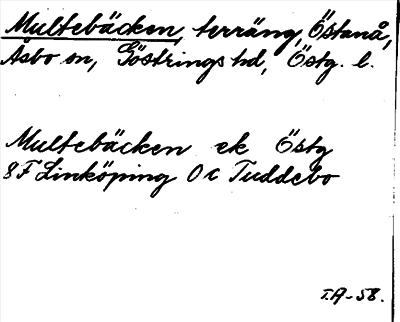 Multebäcken, terräng, Östanå,
Åsbo sn, Göstrings hd, Östg. l.
Multebäcken ek Östg
8F Linköping 0c Tuddebo
I.A-58.